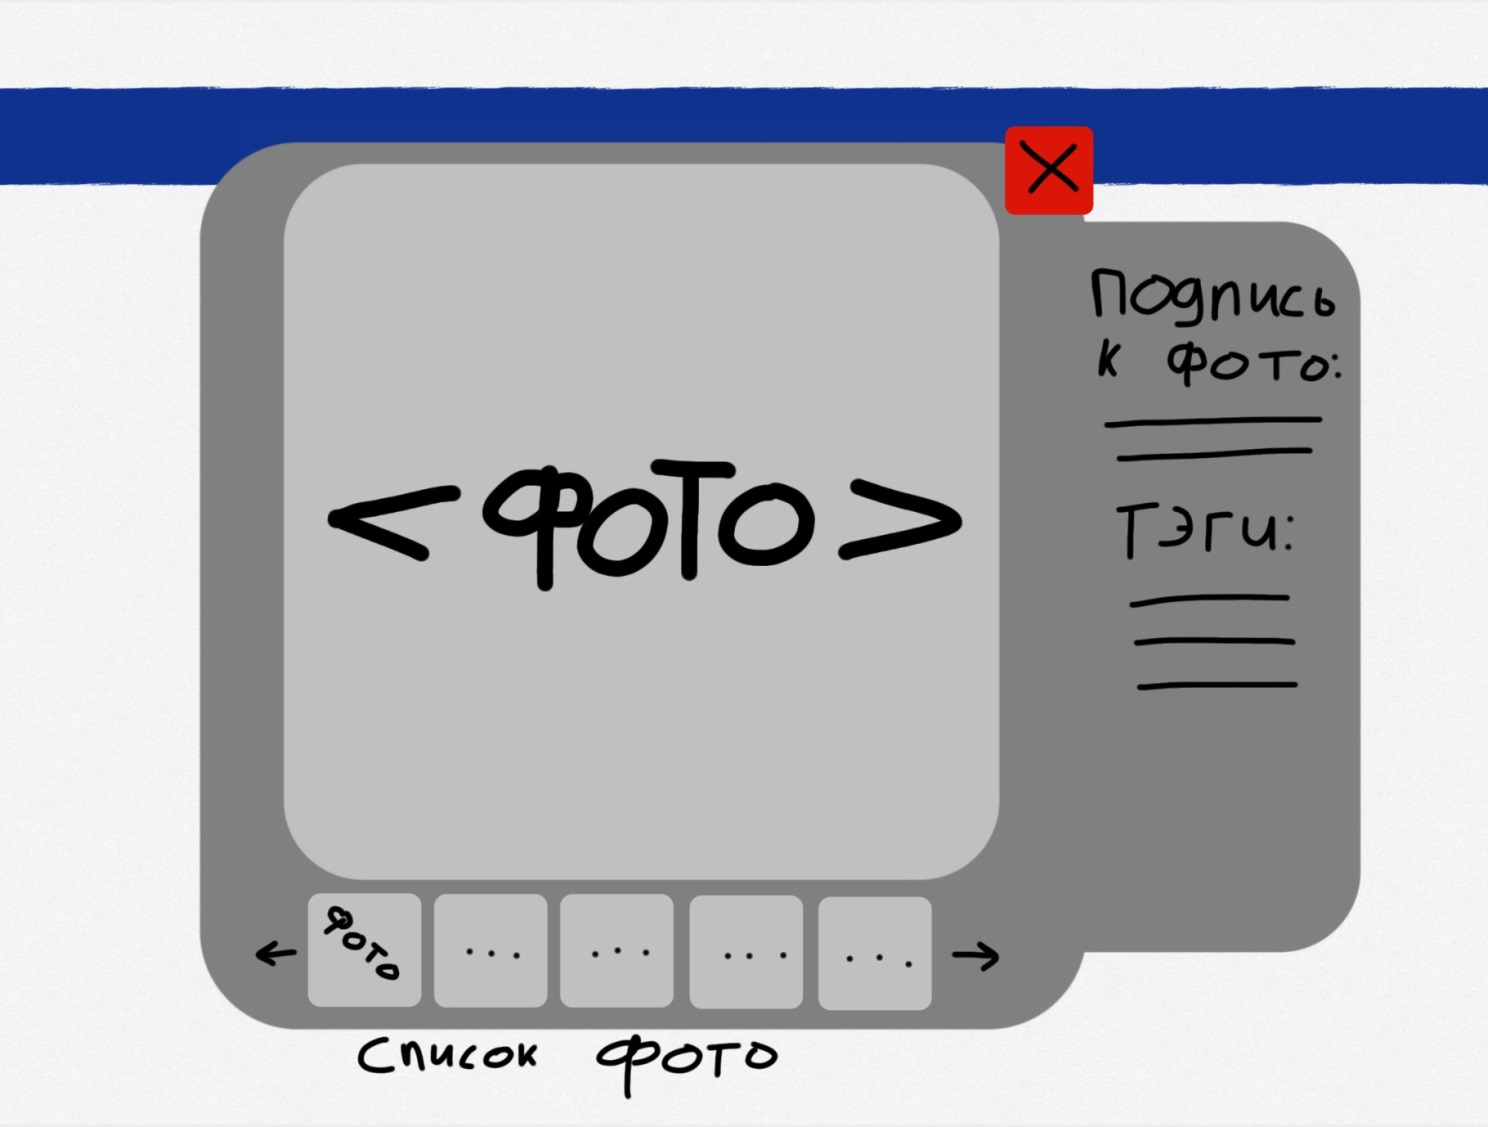 <ФОТО>
Подпись
к фото:
Тэги:
фото
...
...
...
...
Список фото